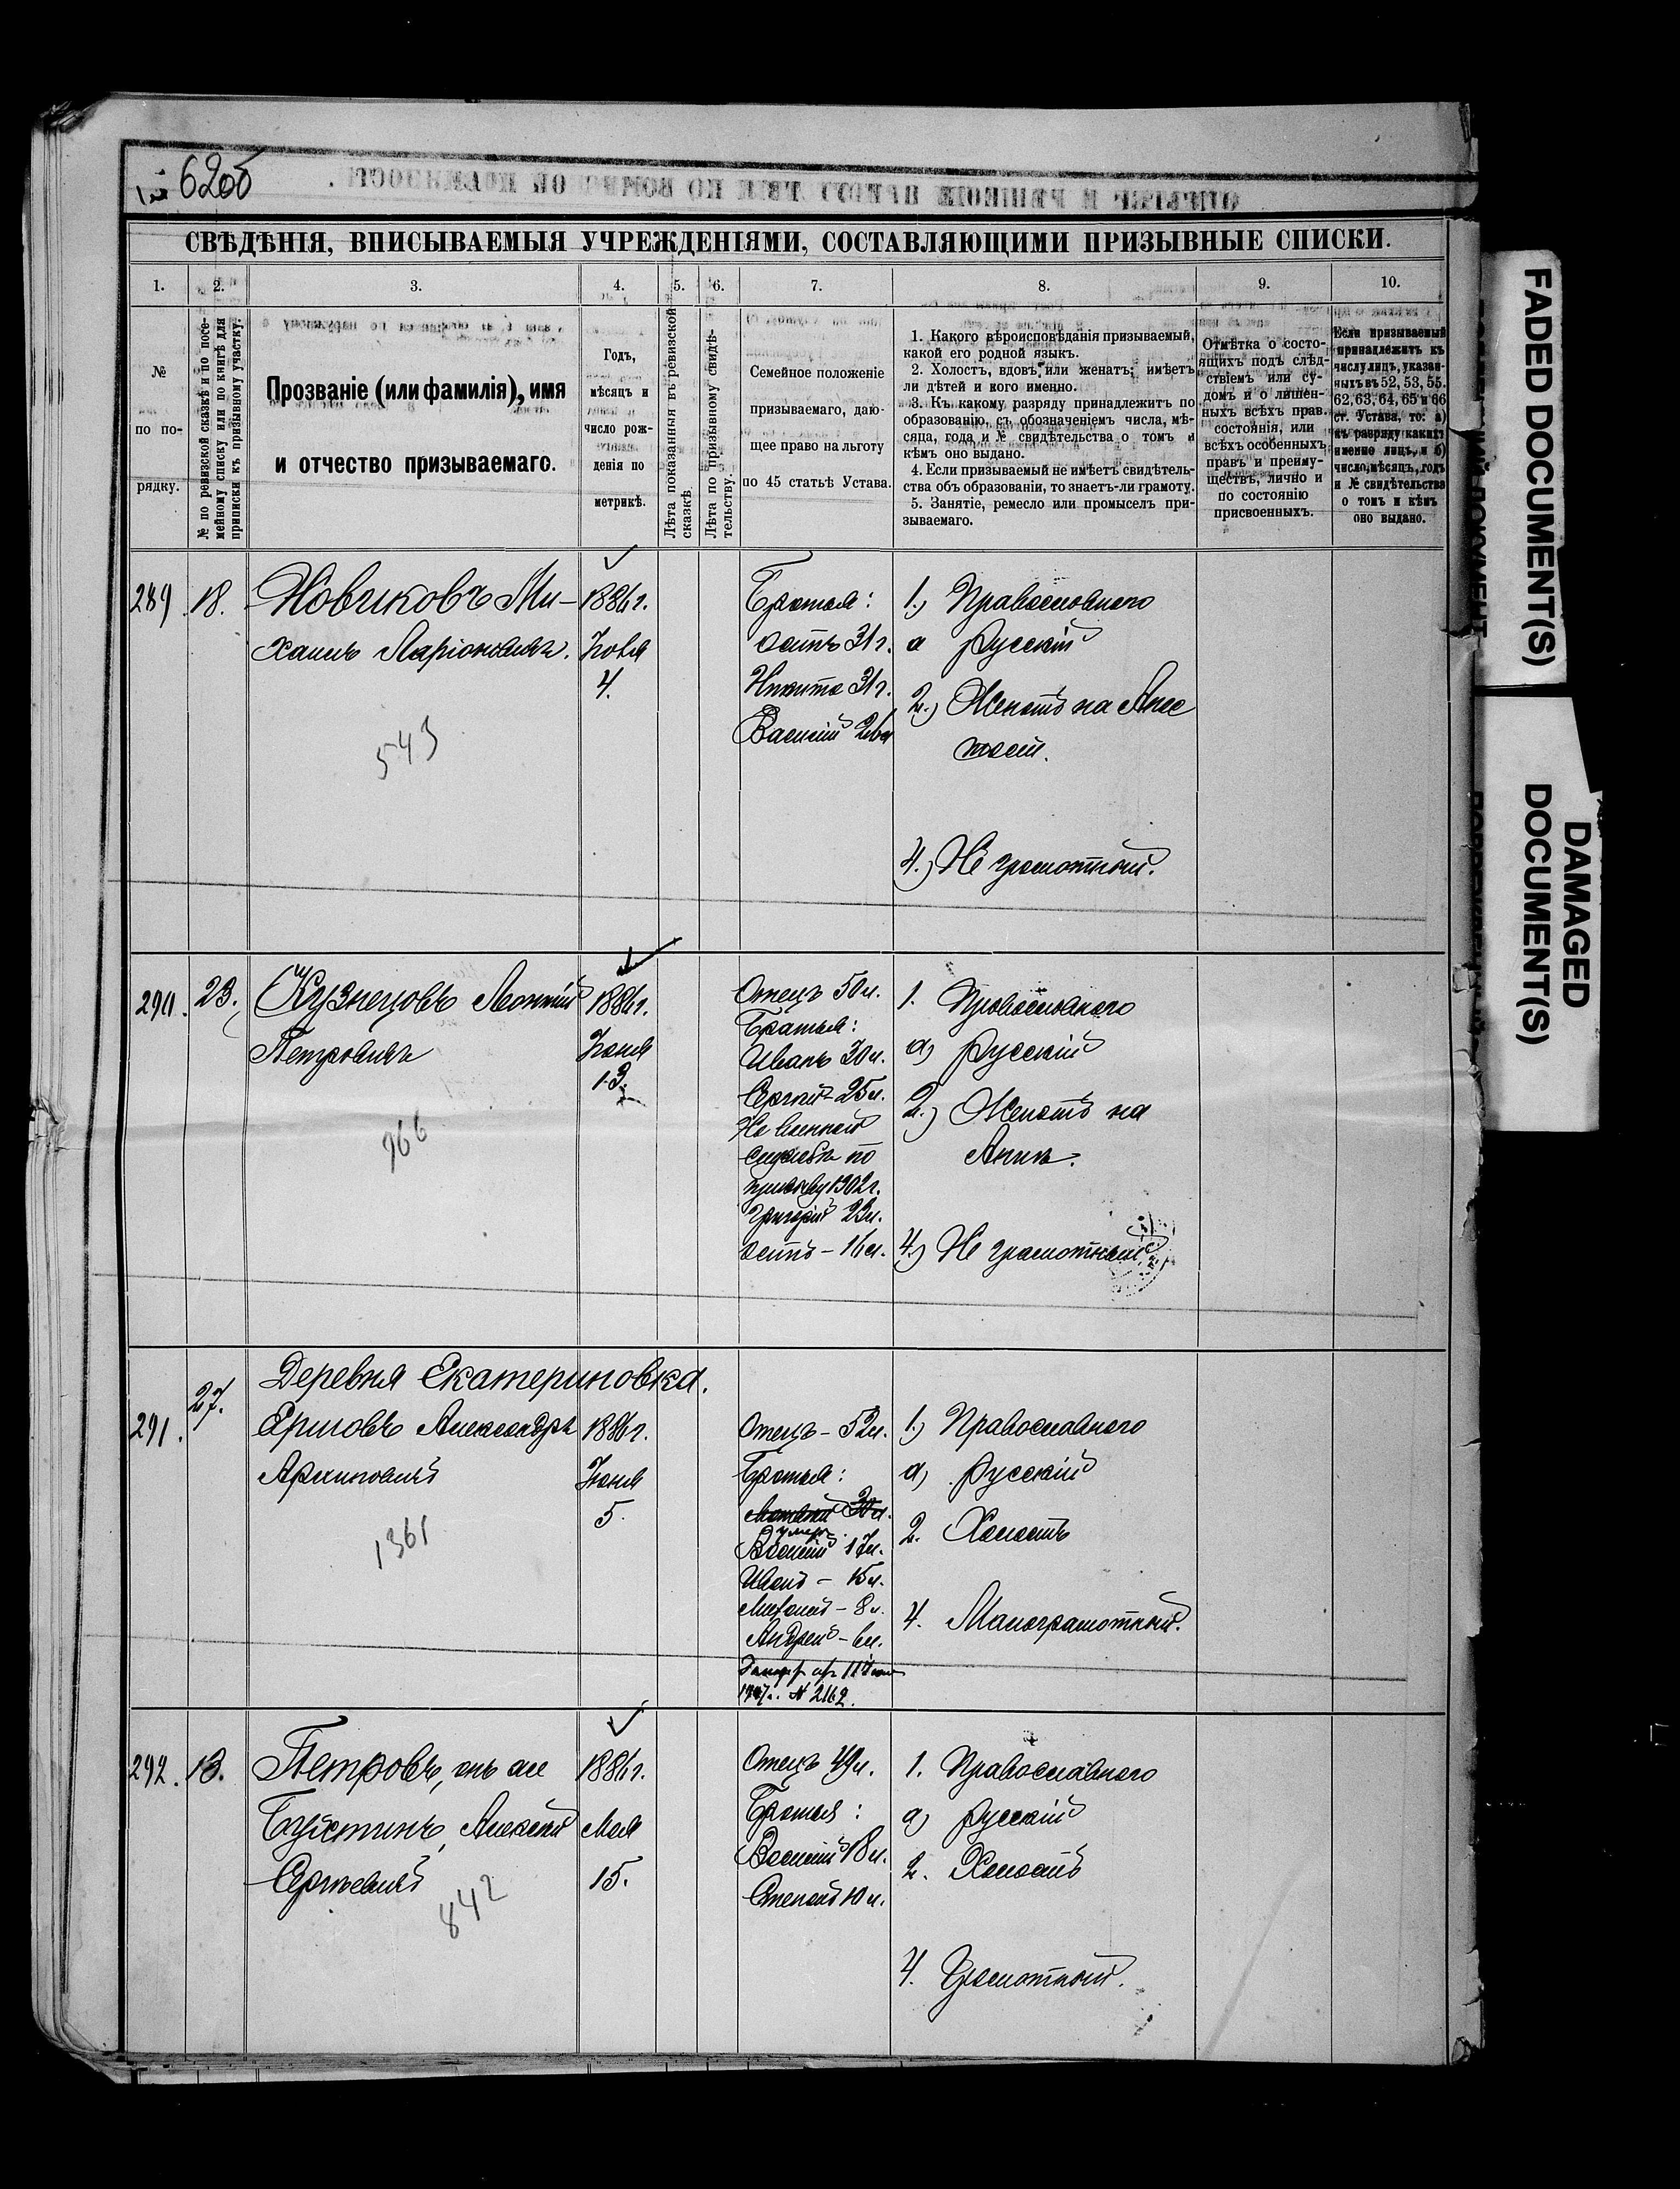 62об
СВѢДѢНІЯ, ВПИСЫВАЕМЫЯ УЧРЕЖДЕНІЯМИ, СОСТАВЛЯЮЩИМИ ПРИЗЫВНЫЕ СПИСКИ.
1. 2. 3. 4. 5. 6. 7. 8. 9. 10.
№
по по-
рядку.
№ по ревизской сказкѣ и по посе-
мейному списку или по книгѣ для
приписки къ призывному участку.
Прозваніе (или фамилія), имя
и отчество призываемаго.
Годъ,
мѣсяцъ и
число рож-
денія по
метрикѣ.
Лѣта показанныя въ ревизской
сказкѣ.
Лѣта по призывному свидѣ-
тельству.
Семейное положеніе
призываемаго, даю-
щее право на льготу
по 45 статьѣ Устава.
1. Какого вѣроисповѣданія призываемый,
какой его родной языкъ.
2. Холостъ, вдовъ или женатъ; имѣетъ
ли дѣтей и кого именно.
3. Къ какому разряду принадлежитъ по
образованію, съ обозначеніемъ числа, мѣ-
сяца, года и № свидѣтельства о томъ и
кѣмъ оно выдано.
4. Если призываемый не имѣетъ свидѣтель-
ства объ образованіи, то знаетъ-ли грамоту.
5. Занятіе, ремесло или промыселъ при-
зываемаго.
Отмѣтка о состо-
ящихъ подъ слѣд-
ствіемъ или су-
домъ и о лишен-
ныхъ всѣхъ прав.
состоянія, или
всѣхъ особенныхъ
правъ и преиму-
ществъ, лично и
по состоянію
присвоенныхъ.
Если призываемый
принадлежитъ къ
числу лицъ, указан-
ныхъ въ 52, 53, 55.
62, 63, 64, 65 и 66
ст. Устава, то: а)
къ разряду какихъ
именно лицъ, и б)
число, мѣсяцъ, годъ
и № свидѣтельства
о томъ и кѣмъ
оно выдано.
289. 18. Новиковъ Ми-
хаилъ Ларіоновичъ.
543
1886 г.
4.
Братья:
31 г.
Никита 31 г.
Василій
1.) Православнаго
а русскій
2.) Женатъ на
4.) Не грамотный.
290. 23. Кузнецовъ Леонтій
Петровичъ
966
1886 г.
Іюня
13.
Отецъ 50 л.
Братья:
Иванъ 30 л.
Сергѣй 25 л.
На военной
службѣ по
призыву 1902 г.
Григорій 23 л.
1. Православнаго
а) русскій
2.) Женатъ на
Аннѣ.
4.) Не грамотный
Деревня Екатериновка.
291. 27. Александръ
Архиповичъ
1361
1886 г.
Іюня
5.
Отецъ - 52 л.
Братья:
Матвѣй 30 л.
умеръ
Василій 17 л.
Иванъ - 15 л.
Михаилъ - 8 л.
Андрей - 6 л.
№ 2162.
1.) Православнаго
а) русскій
2. Холостъ
4. Малограмотный.
292. 13. Петровъ, онъ же
Алексѣй
Сергѣевичъ
842
1886 г.
Мая
15.
Отецъ 49 л.
Братья:
Василій 18 л.
Степанъ 10 л.
1. Православнаго
а) русскій
2. Холостъ
4. Грамотный.
FADED DOCUMENT(S)
DAMAGED
DOCUMENT(S)